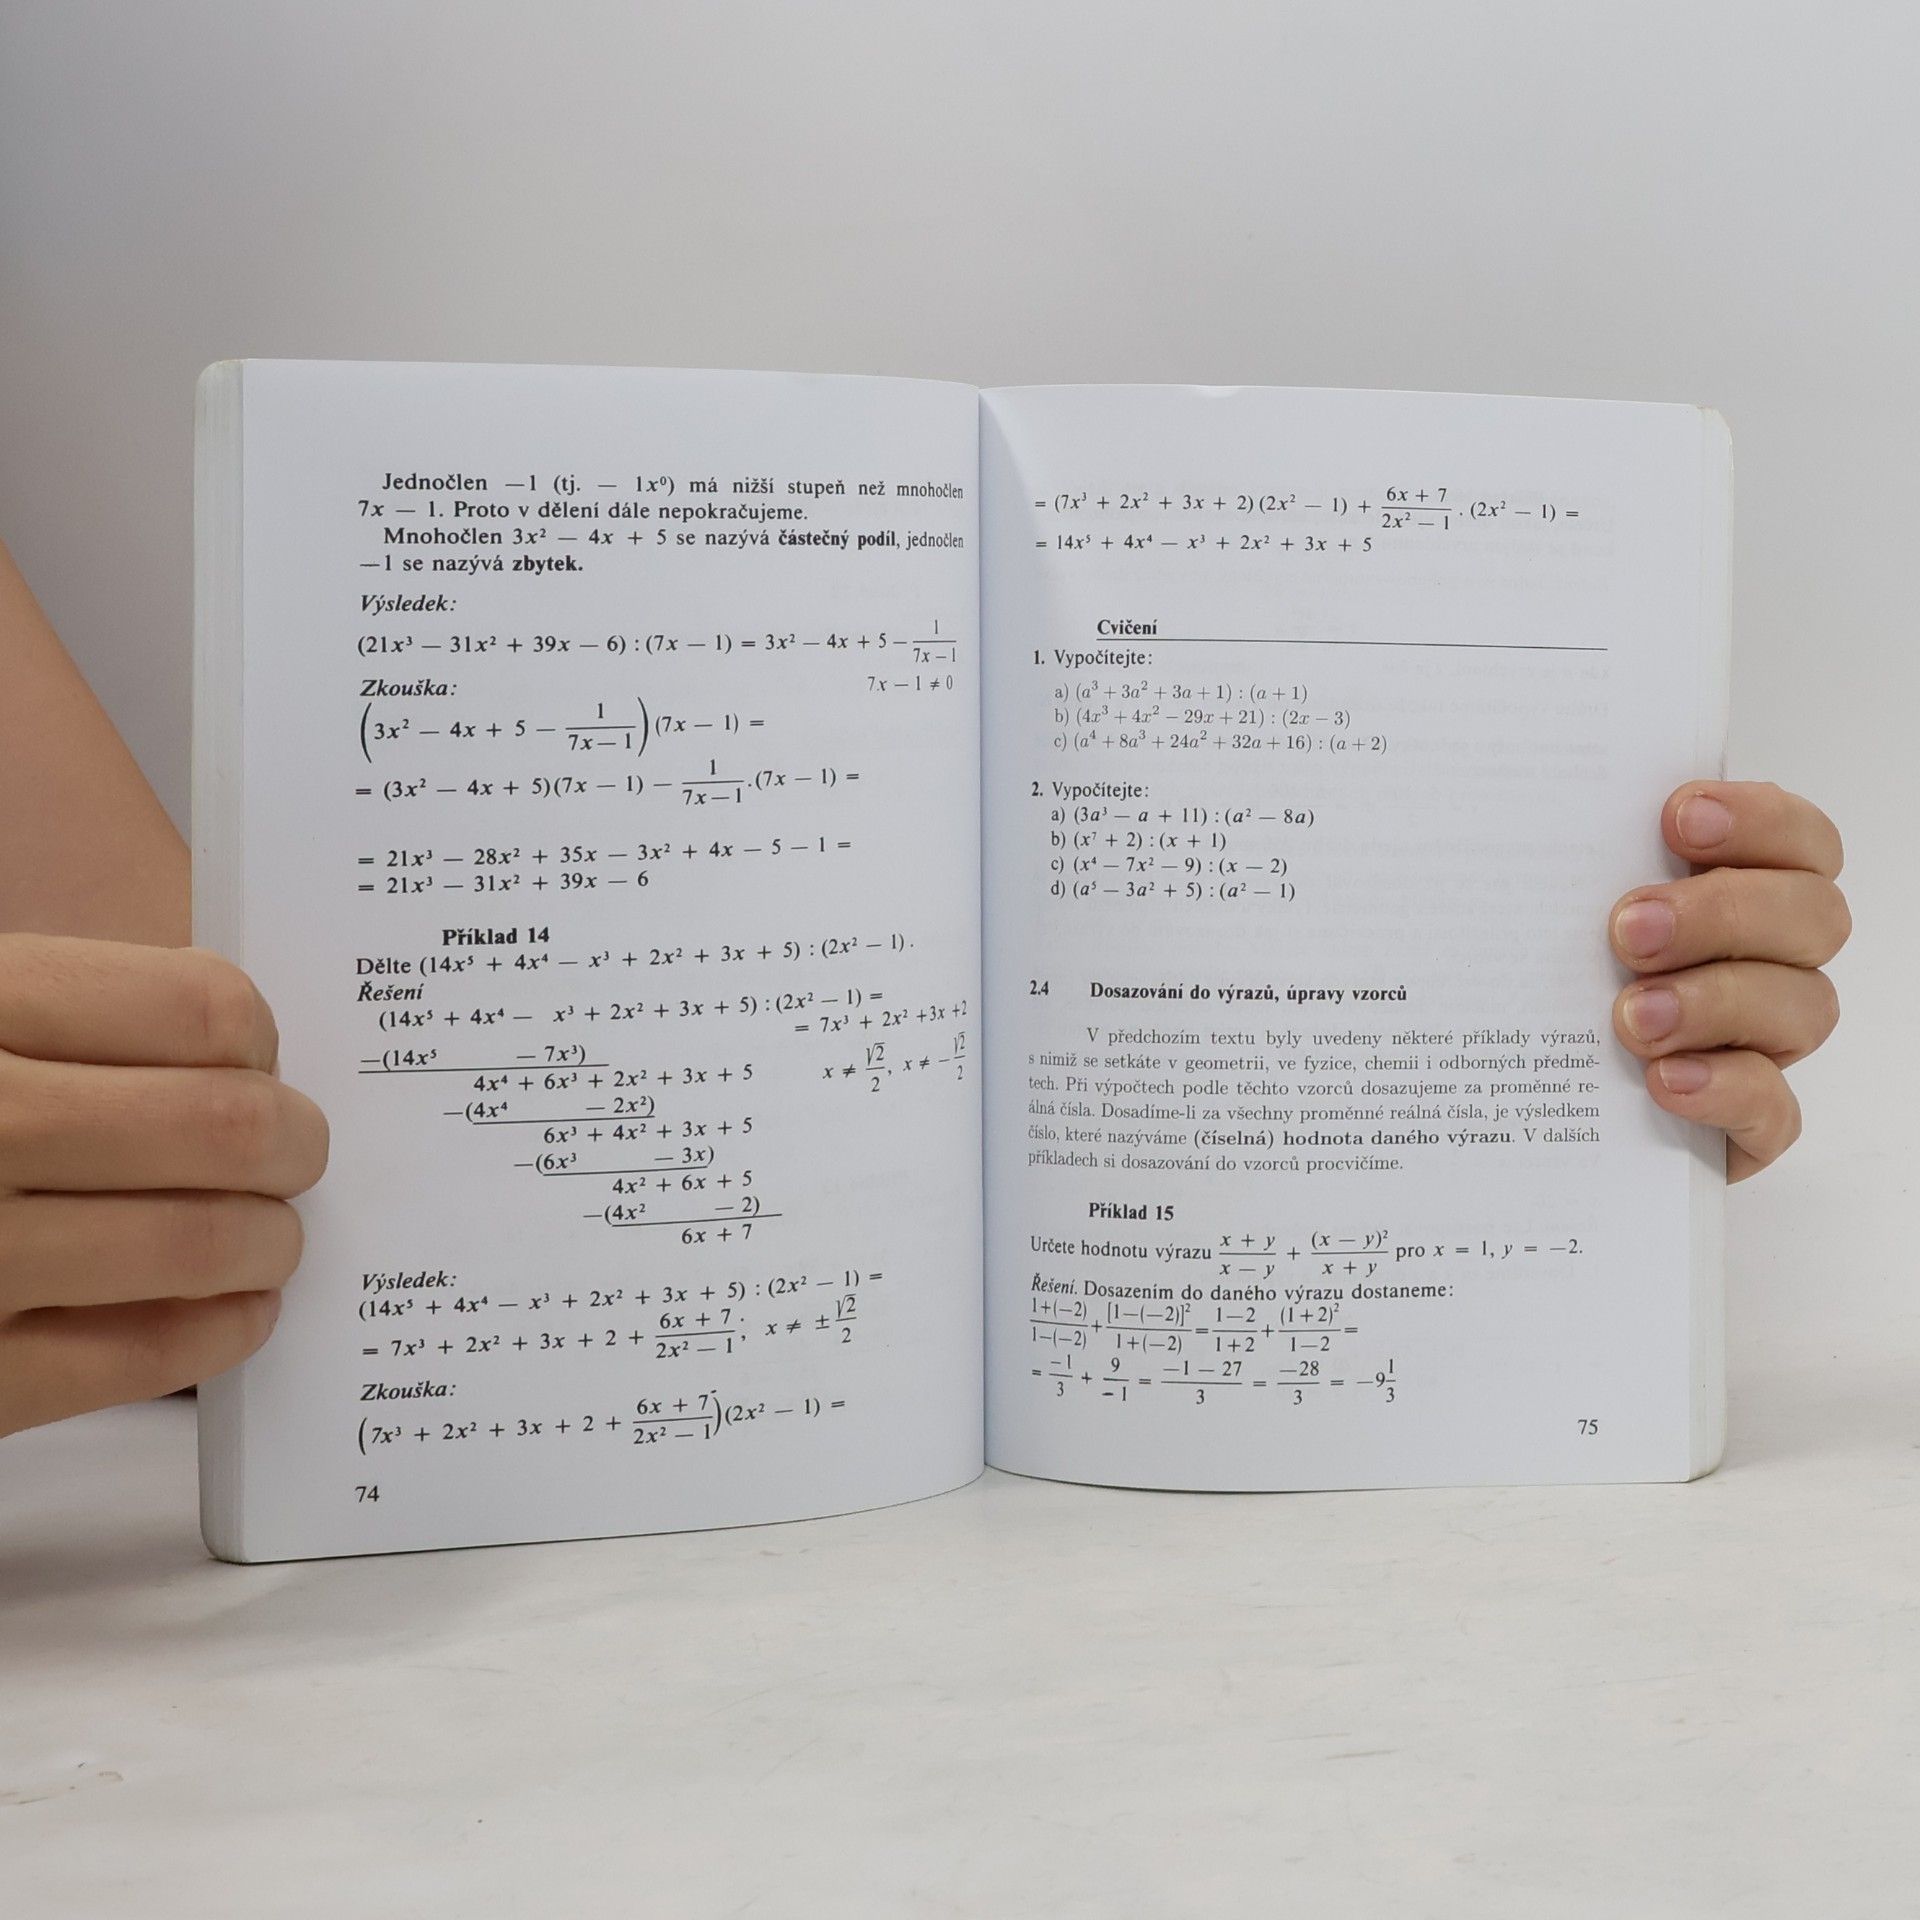 Jednočlen —1 (tj. — 1x⁰) má nižší stupeň než mnohočlen
7x — 1. Proto v dělení dále nepokračujeme.
Mnohočlen 3x² — 4x + 5 se nazývá částečný podíl, jednočlen
—1 se nazývá zbytek.
Výsledek:
(21x³ — 31x² + 39x — 6) : (7x — 1) = 3x² — 4x + 5 — 1/(7x — 1)
7x — 1 ≠ 0
Zkouška:
(3x² — 4x + 5 — 1/(7x — 1)) (7x — 1) =
= (3x² — 4x + 5)(7x — 1) — 1/(7x — 1) . (7x — 1) =
= 21x³ — 28x² + 35x — 3x² + 4x — 5 — 1 =
= 21x³ — 31x² + 39x — 6
Příklad 14
Dělte (14x⁵ + 4x⁴ — x³ + 2x² + 3x + 5) : (2x² — 1).
Řešení
(14x⁵ + 4x⁴ — x³ + 2x² + 3x + 5) : (2x² — 1) =
= 7x³ + 2x² + 3x + 2
—(14x⁵ — 7x³)
4x⁴ + 6x³ + 2x² + 3x + 5 x ≠ √2/2, x ≠ — √2/2
—(4x⁴ — 2x²)
6x³ + 4x² + 3x + 5
—(6x³ — 3x)
4x² + 6x + 5
—(4x² — 2)
6x + 7
Výsledek:
(14x⁵ + 4x⁴ — x³ + 2x² + 3x + 5) : (2x² — 1) =
= 7x³ + 2x² + 3x + 2 + (6x + 7)/(2x² — 1); x ≠ ± √2/2
Zkouška:
(7x³ + 2x² + 3x + 2 + (6x + 7)/(2x² — 1)) (2x² — 1) =
74
= (7x³ + 2x² + 3x + 2) (2x² — 1) + (6x + 7)/(2x² — 1) . (2x² — 1) =
= 14x⁵ + 4x⁴ — x³ + 2x² + 3x + 5
Cvičení
1. Vypočítejte:
a) (a³ + 3a² + 3a + 1) : (a + 1)
b) (4x³ + 4x² − 29x + 21) : (2x − 3)
c) (a⁴ + 8a³ + 24a² + 32a + 16) : (a + 2)
2. Vypočítejte:
a) (3a³ — a + 11) : (a² — 8a)
b) (x⁷ + 2) : (x + 1)
c) (x⁴ — 7x² — 9) : (x — 2)
d) (a⁵ — 3a² + 5) : (a² — 1)
2.4 Dosazování do výrazů, úpravy vzorců
V předchozím textu byly uvedeny některé příklady výrazů,
s nimiž se setkáte v geometrii, ve fyzice, chemii i odborných předmě-
tech. Při výpočtech podle těchto vzorců dosazujeme za proměnné re-
álná čísla. Dosadíme-li za všechny proměnné reálná čísla, je výsledkem
číslo, které nazýváme (číselná) hodnota daného výrazu. V dalších
příkladech si dosazování do vzorců procvičíme.
Příklad 15
Určete hodnotu výrazu (x + y)/(x — y) + (x — y)²/(x + y) pro x = 1, y = —2.
Řešení. Dosazením do daného výrazu dostaneme:
(1+(—2))/(1—(—2)) + [1—(—2)]²/(1+(—2)) = (1—2)/(1+2) + (1+2)²/(1—2) =
= —1/3 + 9/—1 = (—1 — 27)/3 = —28/3 = —9 1/3
75